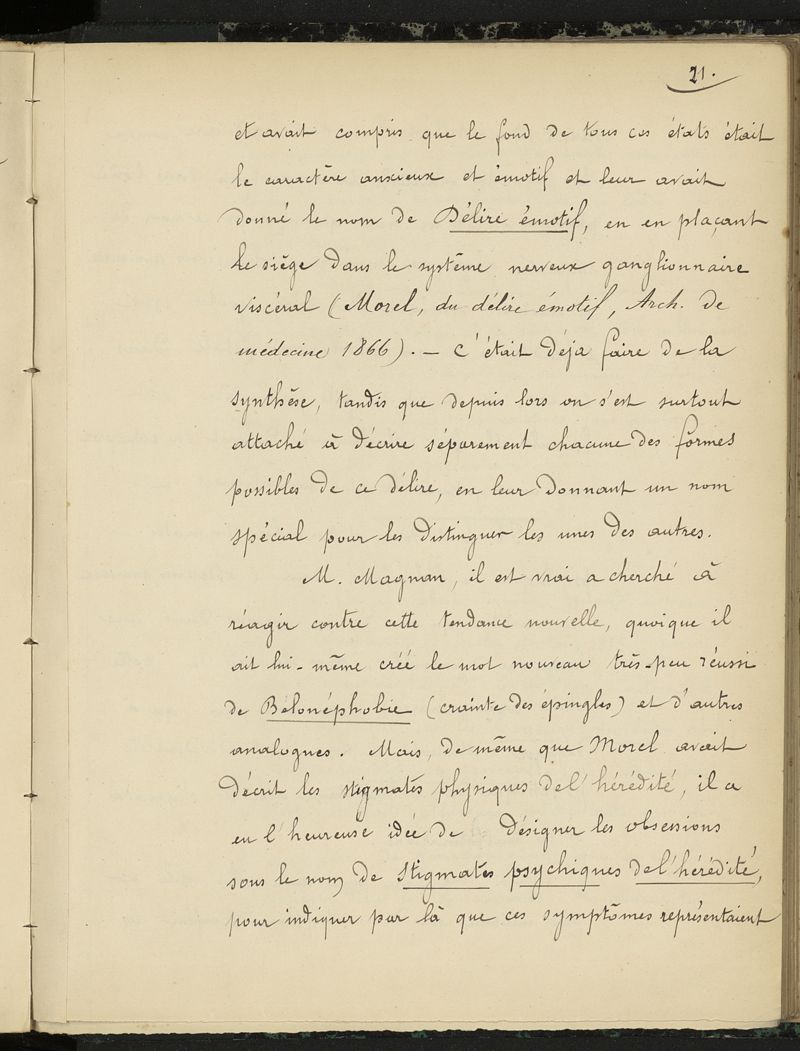 21.
et avait compris que le fond de tous ces états était
le caractère anxieux et émotif et leur avait
donné le nom de Délire émotif, en en plaçant
le siège dans le système nerveux ganglionnaire
viscéral (Morel, du délire émotif, Arch. de
médecine 1866). — C'était déja faire de la
synthèse, tandis que depuis lors on s'est surtout
attaché à décrire séparement chacune des formes
possibles de ce délire, en leur donnant un nom
spécial pour les distinguer les unes des autres.
M. Magnan, il est vrai a cherché à
réagir contre cette tendance nouvelle, quoique il
ait lui-même créé le mot nouveau très-peu réussi
de Bélonéphobie (crainte des épingles) et d'autres
analogues. Mais, de même que Morel avait
décrit les stigmates physiques de l'hérédité, il a
eu l'heureuse idée de désigner les obsessions
sous le nom de stigmates psychiques de l'hérédité,
pour indiquer par là que ces symptômes représentaient